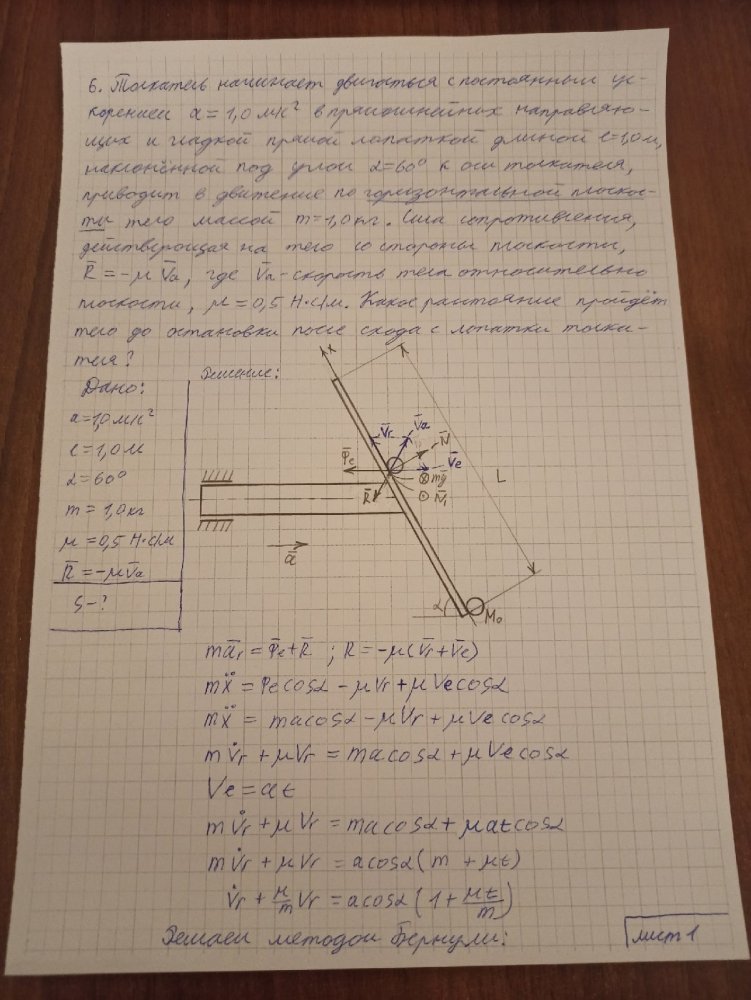 6. Толкатель начинает двигаться с постоянным ус-
корением a = 1,0 м/с² в прямолинейных направляю-
щих и гладкой прямой лопаткой длиной l=1,0м,
наклонённой под углом α=60° к оси толкателя,
приводит в движение по горизонтальной плоскос-
ти тело массой m=1,0кг. Сила сопротивления,
действующая на тело со стороны плоскости,
R̄ = -μV̄a, где V̄a - скорость тела относительно
плоскости, μ=0,5 Н·с/м. Какое расстояние пройдёт
тело до остановки после схода с лопатки толка-
теля?
Дано:
a=1,0 м/с²
l=1,0м
α=60°
m=1,0кг
μ=0,5 Н·с/м
R̄=-μV̄a
S-?
Решение:
x
V̄r
V̄a
N̄
Φ̄e
V̄e
mḡ
R̄
N̄₁
L
ā
α
M₀
mār = Φ̄e + R̄ ; R = -μ(V̄r + V̄e)
mẍ = Φe cosα - μVr + μVe cosα
mẍ = ma cosα - μVr + μVe cosα
mV̇r + μVr = ma cosα + μVe cosα
Ve = at
mV̇r + μVr = ma cosα + μat cosα
mV̇r + μVr = a cosα (m + μt)
V̇r + μ/m Vr = a cosα (1 + μt/m)
Решаем методом Бернули:
лист 1